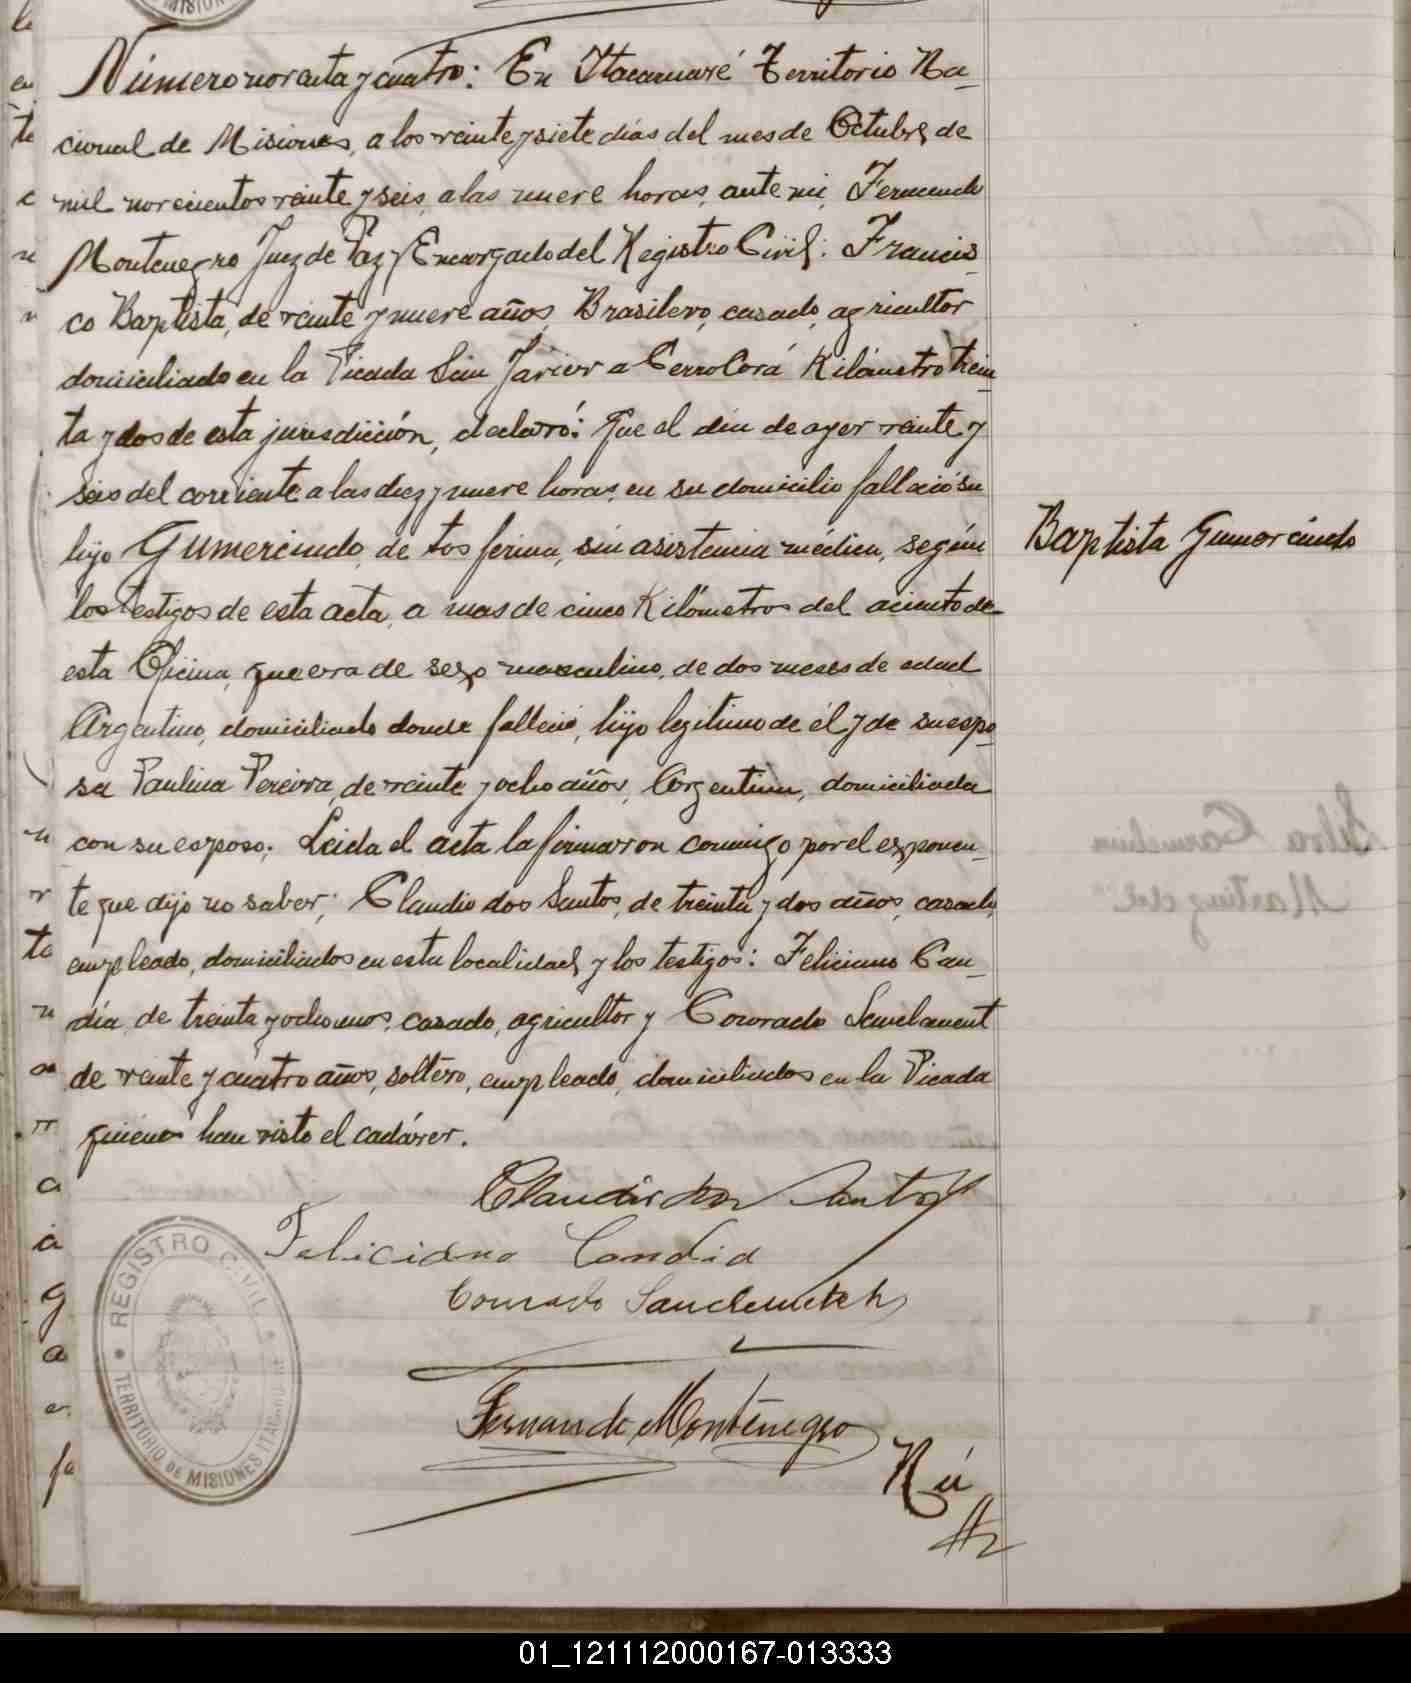 Número noventa y cuatro: En Itacaruaré Territorio Na-
cional de Misiones, a los veinte y siete dias del mes de Octubre de
mil novecientos veinte y seis, a las nueve horas, ante mi, Fernando
Montenegro Juez de Paz y Encargado del Registro Civil: Francis-
co Baptista, de veinte y nueve años, Brasilero, casado, agricultor
domiciliado en la Picada San Javier a Cerro Corá Kilómetro trein-
ta y dos de esta jurisdicción, declaró: Que el dia de ayer veinte y
seis del corriente a las diez y nueve horas, en su domicilio falleció su
hijo Gumercindo, de tos ferina, sin asistencia médica, según
los testigos de esta acta, a mas de cinco Kilómetros del aciento de
esta Oficina, que era de sexo masculino, de dos meses de edad
Argentino, domiciliado donde falleció, hijo legitimo de él y de su espo-
sa Paulina Pereira, de veinte y ocho años, Argentina, domiciliada
con su esposo. Leida el acta la firmaron conmigo por el exponen-
te que dijo no saber; Claudio dos Santos, de treinta y dos años, casado,
empleado, domiciliados en esta localidad, y los testigos: Feliciano Can-
dia, de treinta y ocho anos, casado, agricultor y Conrado
de veinte y cuatro años, soltero, empleado, domiciliados en la Picada
quienes han visto el cadáver.
Baptista Gumercindo
Claudio dos Santos
Feliciano Candia
Conrado
Fernando Montenegro
Nú
REGISTRO CIVIL
TERRITORIO DE MISIONES
01_121112000167-013333